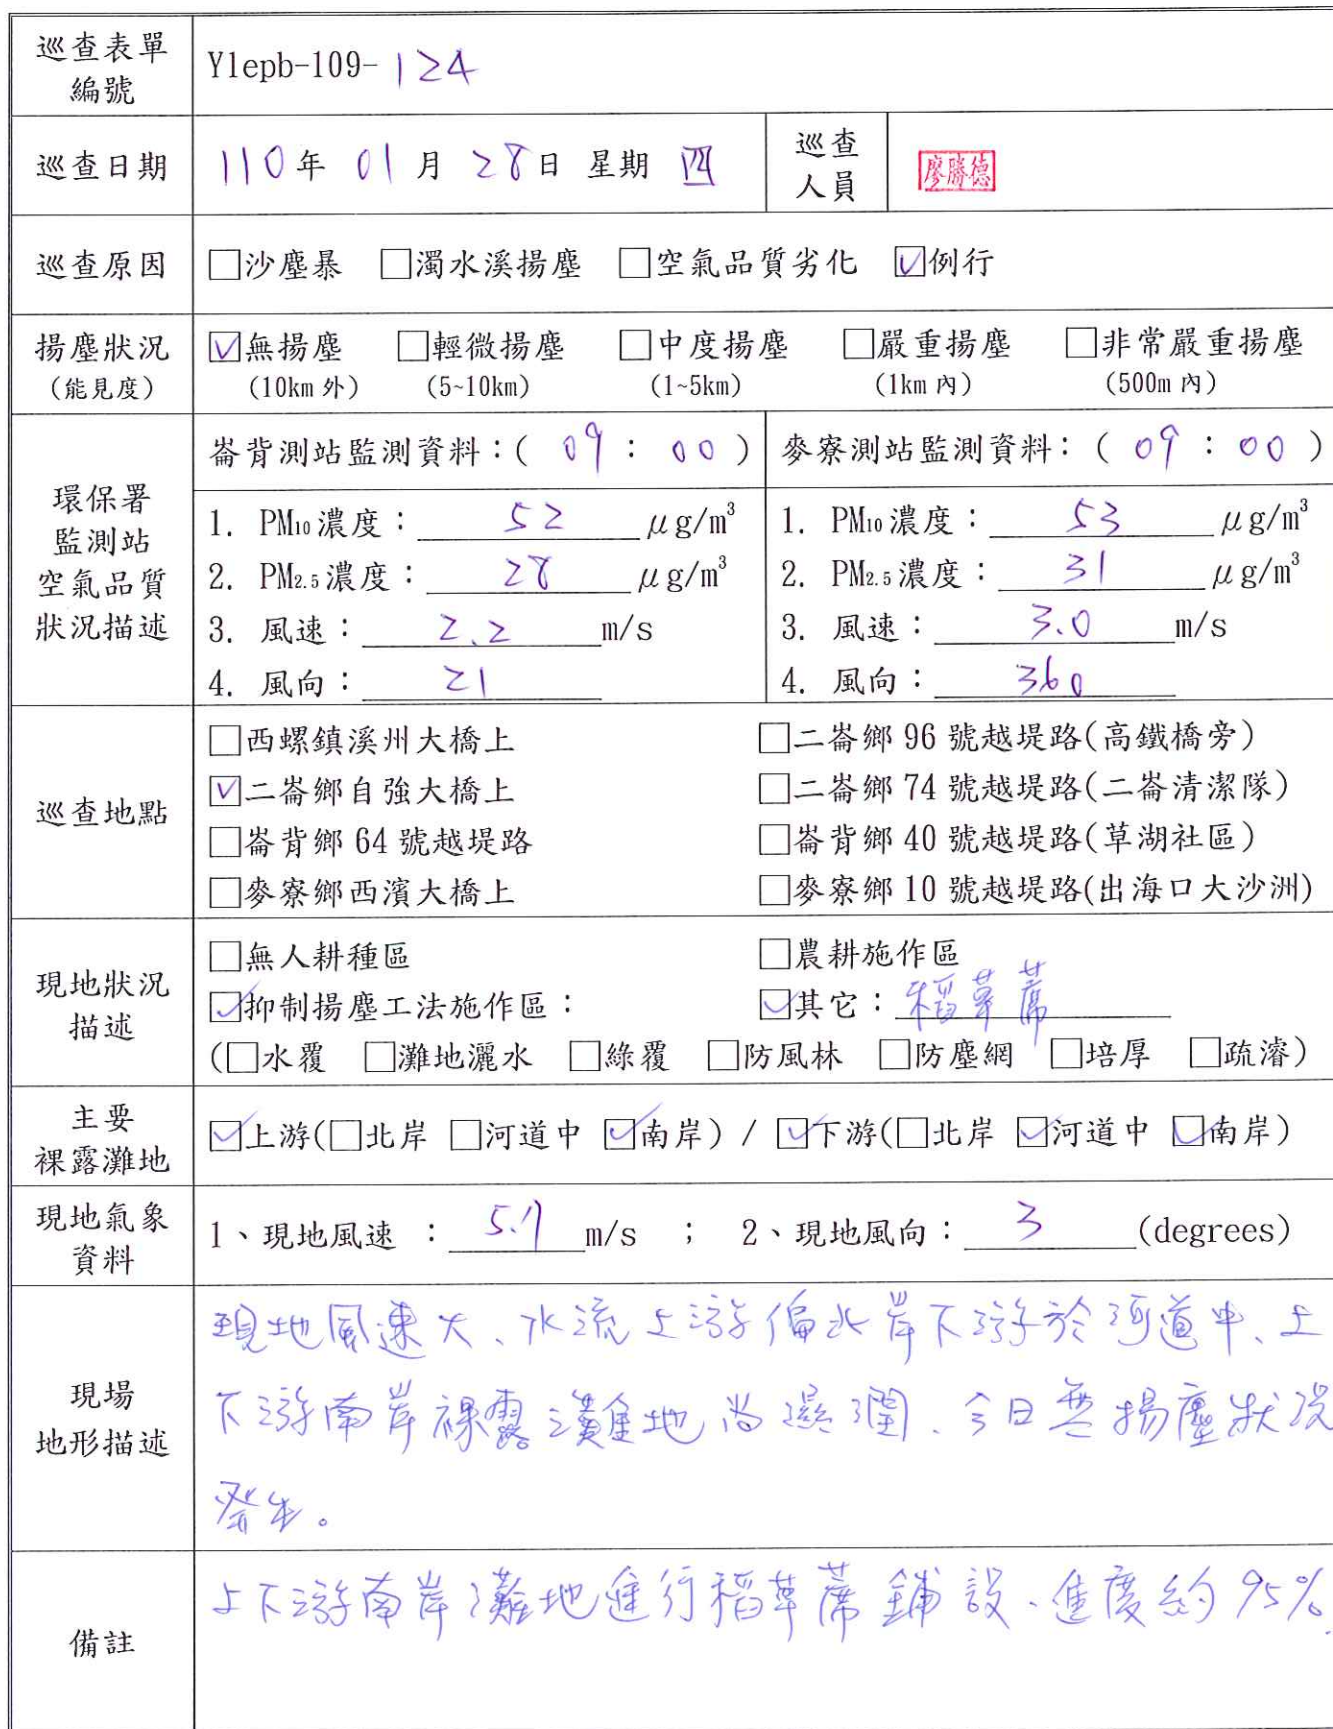 巡查表單
編號
Ylepb-109-124
巡查日期
110年 01月 28日 星期 四
巡查
人員
廖勝德
巡查原因
□沙塵暴 □濁水溪揚塵 □空氣品質劣化 ☑例行
揚塵狀況
(能見度)
☑無揚塵 □輕微揚塵 □中度揚塵 □嚴重揚塵 □非常嚴重揚塵
(10km 外) (5~10km) (1~5km) (1km 內) (500m 內)
環保署
監測站
空氣品質
狀況描述
崙背測站監測資料:( 09 : 00 )
1. PM10濃度: 52 μg/m³
2. PM2.5濃度: 28 μg/m³
3. 風速: 2.2 m/s
4. 風向: 21
麥寮測站監測資料:( 09 : 00 )
1. PM10濃度: 53 μg/m³
2. PM2.5濃度: 31 μg/m³
3. 風速: 3.0 m/s
4. 風向: 360
巡查地點
□西螺鎮溪州大橋上 □二崙鄉 96 號越堤路(高鐵橋旁)
☑二崙鄉自強大橋上 □二崙鄉 74 號越堤路(二崙清潔隊)
□崙背鄉 64 號越堤路 □崙背鄉 40 號越堤路(草湖社區)
□麥寮鄉西濱大橋上 □麥寮鄉 10 號越堤路(出海口大沙洲)
現地狀況
描述
□無人耕種區 □農耕施作區
☑抑制揚塵工法施作區: ☑其它:稻草蓆
(□水覆 □灘地灑水 □綠覆 □防風林 □防塵網 □培厚 □疏濬)
主要
裸露灘地
☑上游(□北岸 □河道中 ☑南岸) / ☑下游(□北岸 ☑河道中 ☑南岸)
現地氣象
資料
1、現地風速 : 5.7 m/s ; 2、現地風向: 3 (degrees)
現場
地形描述
現地風速大、水流上游偏北岸下游於河道中、上
下游南岸裸露灘地尚濕潤、今日無揚塵狀況
發生。
備註
上下游南岸灘地進行稻草蓆鋪設、進度約95%.